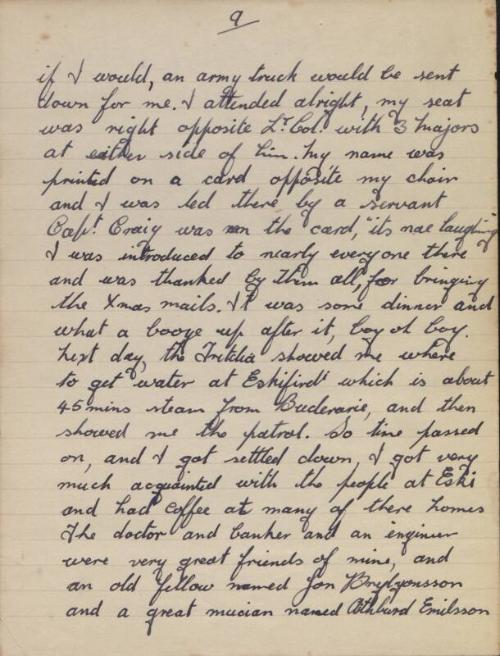 9
if I would, an army truck would be sent
down for me. I attended alright, my seat
was right opposite Lt. Col. with 3 Majors
at either side of him. My name was
printed on a card opposite my chair
and I was led there by a servant
Capt. Craig was on the card, "its nae laughing
I was introduced to nearly everyone there
and was thanked by them all, for bringing
the Xmas mails. It was some dinner and
what a booze up after it, boy oh boy.
Next day, the showed me where
to get water at Eskifirdi which is about
45 mins steam from and then
showed me the patrol. So time passed
on, and I got settled down, I got very
much acquainted with the people at Eski
and had coffee at many of there homes
The doctor and banker and an engineer
were very great friends of mine, and
an old fellow named Jon
and a great musian named Emilsson